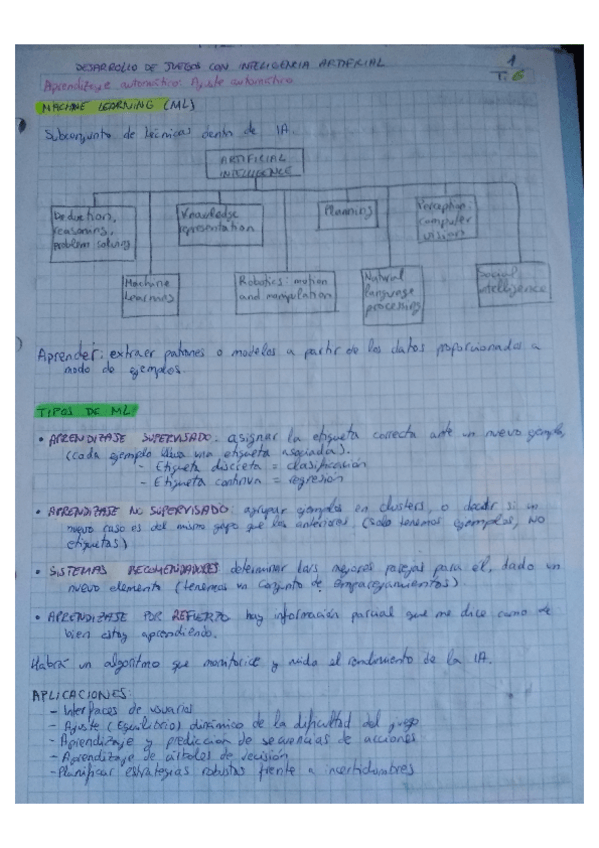 DESARROLLO DE JUEGOS CON INTELIGENCIA ARTIFICIAL
1
T. 6
Aprendizaje automático. Ajuste automático
MACHINE LEARNING (ML)
Subconjunto de técnicas dentro de IA.
ARTIFICIAL
INTELLIGENCE
Deduction,
reasoning,
problem solving
Knowledge
representation
Planning
Perception:
computer
vision
Machine
Learning
Robotics: motion
and manipulation
Natural
language
processing
Social
intelligence
Aprender: extraer patrones o modelos a partir de los datos proporcionados a
modo de ejemplos.
TIPOS DE ML
• APRENDIZAJE SUPERVISADO: asignar la etiqueta correcta ante un nuevo ejemplo
(cada ejemplo lleva una etiqueta asociada).
- Etiqueta discreta = clasificación
- Etiqueta continua = regresión
• APRENDIZAJE NO SUPERVISADO: agrupar ejemplos en clusters, o decidir si un
nuevo caso es del mismo grupo que los anteriores (solo tenemos ejemplos, no
etiquetas)
• SISTEMAS RECOMENDADORES determinar las mejores parejas para el, dado un
nuevo elemento (tenemos un conjunto de emparejamientos).
• APRENDIZAJE POR REFUERZO hay información parcial que me dice como de
bien estoy aprendiendo.
Habrá un algoritmo que monitorice y mida el rendimiento de la IA.
APLICACIONES:
- Interfaces de usuarios
- Ajuste (Equilibrio) dinámico de la dificultad del juego
- Aprendizaje y predicción de secuencias de acciones
- Aprendizaje de árboles de decisión
- Planificar estrategias robustas frente a incertidumbres